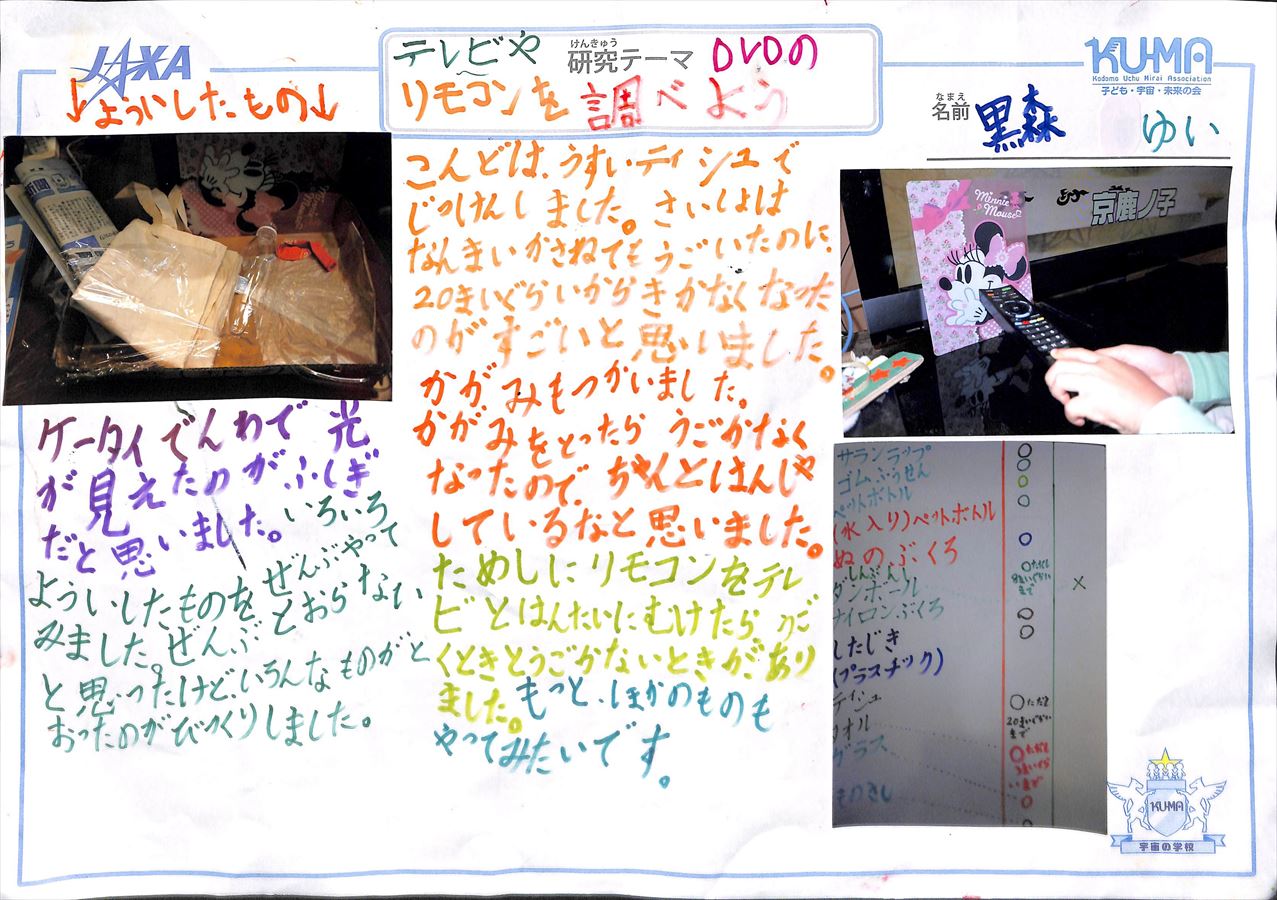 JAXA
テレビや 研究テーマ DVDの
けんきゅう
リモコンを調べよう
KU-MA
Kodomo Uchu Mirai Association
子ども・宇宙・未来の会
なまえ
名前 黒森 ゆい
↓よういしたもの↓
新聞
ケータイでんわで光
が見えたのがふしぎ
だと思いました。いろいろ
よういしたものをぜんぶやって
みました。ぜんぶとおらない
と思ったけど、いろんなものがと
おったのがびっくりしました。
こんどは、うすいティシュで
じっけんしました。さいしょは
なんまいかさねてもうごいたのに、
20まいぐらいからきかなくなった
のがすごいと思いました。
かがみもつかいました。
かがみをとったらうごかなく
なったので、ちゃんとはんしゃ
しているなと思いました。
ためしにリモコンをテレ
ビとはんたいにむけたら、うご
くときとうごかないときがあり
ました。もっと、ほかのものも
やってみたいです。
Minnie
Mouse
京鹿ノ子
サランラップ ○
ゴムふうせん ○
ペットボトル ○
(水入り)ペットボトル ○
ぬのぶくろ ○
しんぶんし ○ただし
まで
ダンボール ×
ナイロンぶくろ ○
したじき ○
(プラスチック)
ティシュ ○ただし
20まいぐらい
まで
タオル ○ただし
いまで
ガラス ○
ものさし ○
KU-MA
宇宙の学校